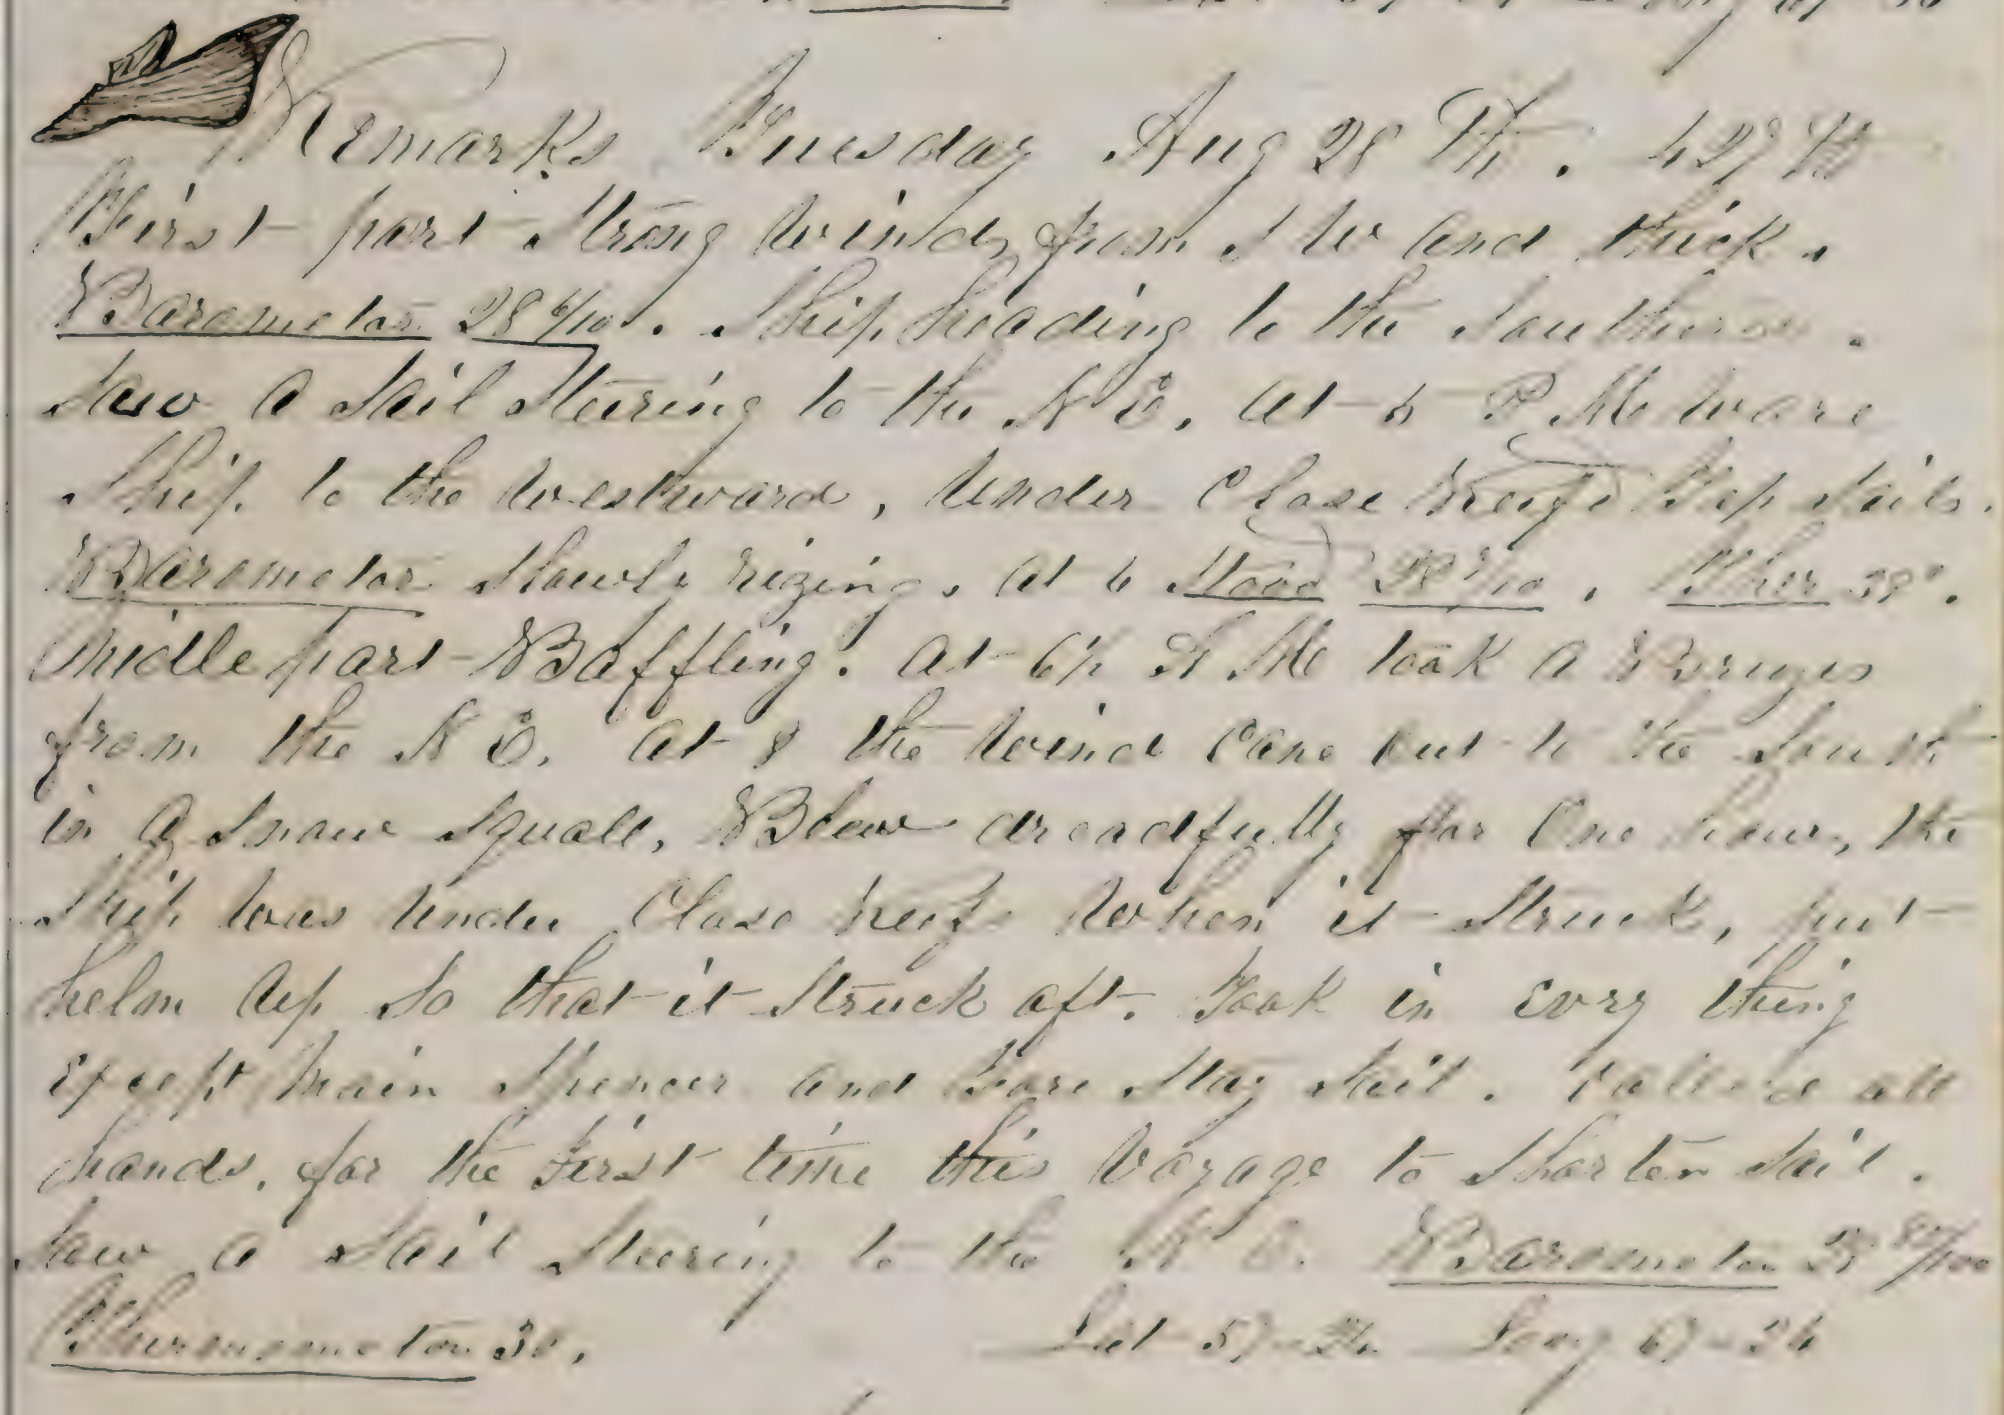 Remarks Tuesday Aug 28 Th.
First part Strong Winds from S W and thick.
Barometor 28 6/10. Ship heading to the Southward.
Saw a Sail Steering to the N E. at 4 P M ware
Ship to the Westward, Under Close Reefd Top Sails.
Barometor Slowly rizing. at 6 Stood Ther 38°.
Midle part Baffling. at 6½ A M took a Breeze
from the N E. at 8 the Wind Came out to the South
in a Snow Squall, Blew dreadfully for One hour, the
Ship was under Close Reefs When it Struck, put
helm Up So that it Struck aft. Took in Evry thing
Except Main Spencer and Fore Stay Sail. Called all
hands, for the First time this Voyage to Shorten Sail.
Saw a Sail Steering to the N E. Barometor
Thermometor 30. Lat 57-26 Long 67-26